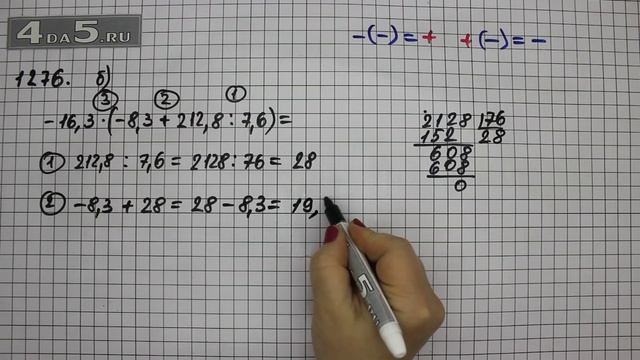 4DA5.RU
-(-) = + +(-) = -
1276. б)
③ ② ①
-16,3·(-8,3+212,8:7,6)=
① 212,8 : 7,6 = 2128:76 = 28
② -8,3 + 28 = 28-8,3 = 19,
2128 76
152 28
608
608
0
5